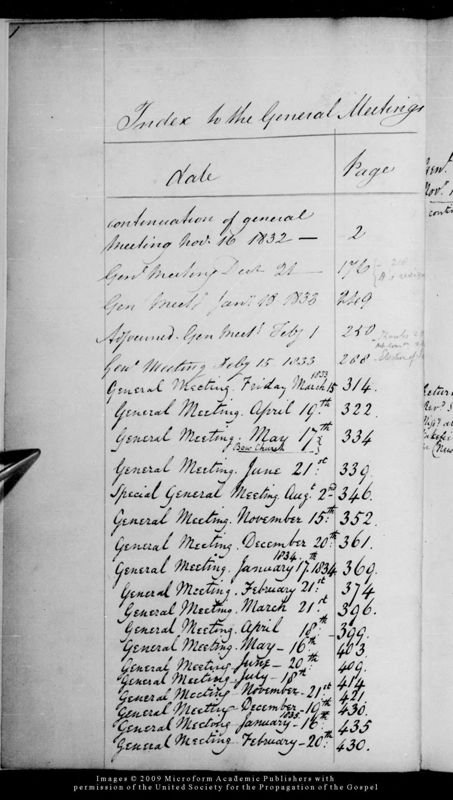 Index to the General Meetings
Date Page
continuation of general
Meeting Nov. 16 1832 — 2
Genl Meeting Dect 21 — 176
Gen Meetg Jany 18 1833 249
Adjourned Gen Meetg Feby 1 250
Genl Meeting Feby 15 1833 288
General Meeting. Friday March 15 1833 314.
General Meeting. April 19th 322.
General Meeting. May 17th 334
Bow Church
General Meeting. June 21st 339.
Special General Meeting Augt 2nd 346.
General Meeting. November 15th 352.
General Meeting. December 20th 361.
1834
General Meeting. January 17th 1834 369.
General Meeting. February 21st 374
General Meeting. March 21st 396.
General Meeting. April 18th - 399.
General Meeting. May - 16th 403.
General Meeting June - 20th 409.
General Meeting - July - 18th 414
General Meeting November - 21st 421
General Meeting - December - 19th 430.
1835
General Meeting January - 16th 435
General Meeting. February - 20th 430.
Images © 2009 Microform Academic Publishers with
permission of the United Society for the Propagation of the Gospel